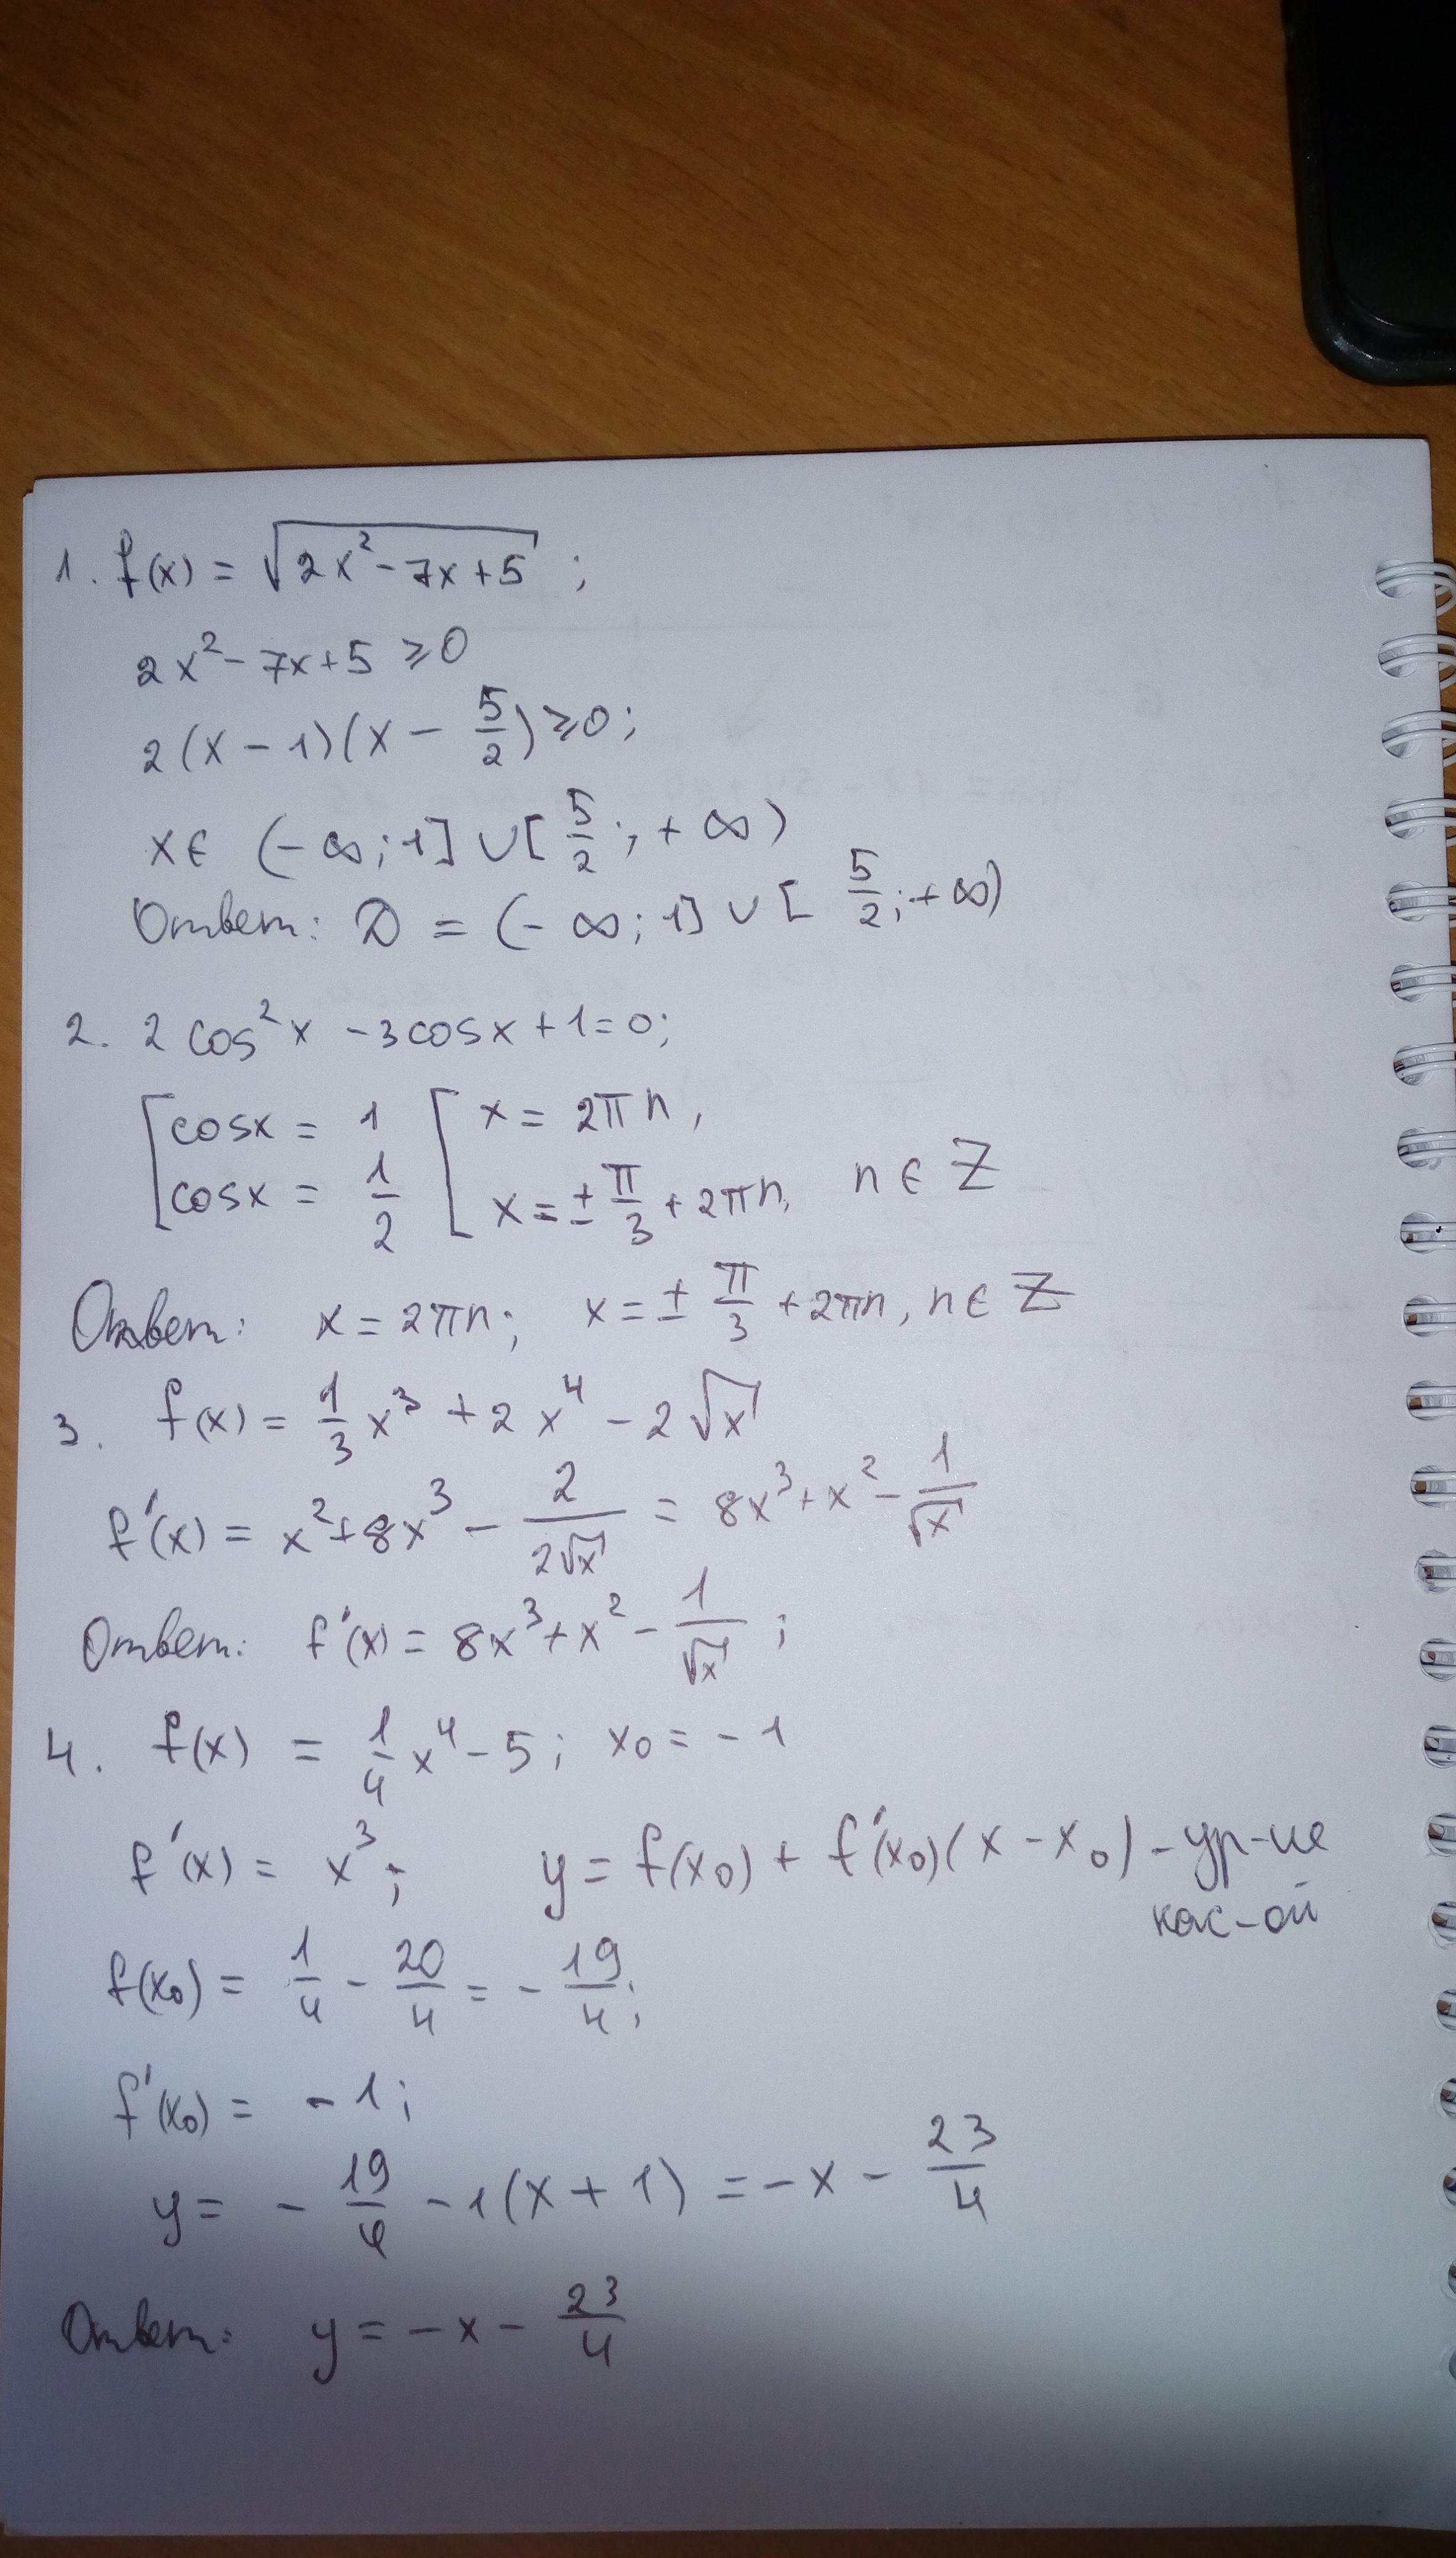 1. f(x) = √(2x² - 7x + 5) ;
2x² - 7x + 5 ⩾ 0
2(x - 1)(x - 5/2) ⩾ 0;
x ∈ (-∞; 1] ∪ [5/2; +∞)
Ответ: D = (-∞; 1] ∪ [5/2; +∞)
2. 2cos²x - 3cosx + 1 = 0;
[cosx = 1 [x = 2πn,
[cosx = 1/2 [x = ±π/3 + 2πn, n ∈ Z
Ответ: x = 2πn; x = ±π/3 + 2πn, n ∈ Z
3. f(x) = 1/3 x³ + 2x⁴ - 2√x
f'(x) = x² + 8x³ - 2/(2√x) = 8x³ + x² - 1/√x
Ответ: f'(x) = 8x³ + x² - 1/√x ;
4. f(x) = 1/4 x⁴ - 5; x₀ = -1
f'(x) = x³; y = f(x₀) + f'(x₀)(x - x₀) - ур-ие
кас-ой
f(x₀) = 1/4 - 20/4 = -19/4;
f'(x₀) = -1;
y = -19/4 - 1(x + 1) = -x - 23/4
Ответ: y = -x - 23/4